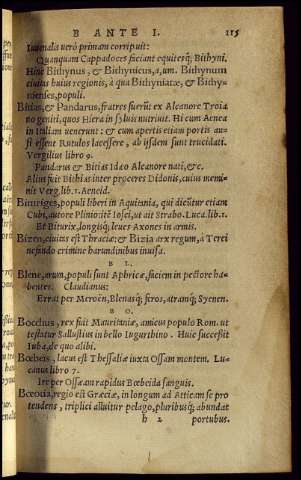 B ANTE I. 115
Iuuenalis uerò primam corripuit:
Quanquam Cappadoces faciant equitesq; Bithyni.
Hinc Bithynus, & Bithynicus, a, um. Bithynum
ciuitas huius regionis, à qua Bithyniatæ, & Bithy-
nienses, populi.
Bitias, & Pandarus, fratres fuerūt ex Alcanore Troia
no geniti, quos Hiera in syluis nutriuit. Hi cum Aenea
in Italiam uenerunt: & cum apertis etiam portis au-
si essent Rutulos lacessere, ab iisdem sunt trucidati.
Vergilius libro 9.
Pandarus & Bitias Ideo Alcanore nati, &c.
Alius fuit Bithias inter proceres Didonis, cuius memi-
nit Verg. lib. 1. Aeneid.
Bituriges, populi liberi in Aquitania, qui dicūtur etiam
Cubi, autore Plinio & Iosef, ut ait Strabo. Luca. lib. 1.
Et Biturix, longisq; leues Axones in armis.
Bizen, ciuitas est Thraciæ: & Bizia arx regum, à Terei
nefando crimine harundinibus inuisa.
B L.
Blene, arum, populi sunt Aphricæ, faciem in pectore ha-
bentes. Claudianus:
Errat per Meroën, Blenasq; feros, atramq; Syenen.
B O.
Bocchus, rex fuit Mauritaniæ, amicus populo Rom. ut
testatur Sallustius in bello Iugurthino. Huic successit
Iuba, de quo alibi.
Bœbeis, lacus est Thessaliæ iuxta Ossam montem. Lu-
canus libro 7.
Ire per Ossæam rapidus Bœbeida sanguis.
Bœotia, regio est Græciæ, in longum ad Atticam se pro
tendens, triplici alluitur pelago, pluribusq; abundat
h 2 portubus.